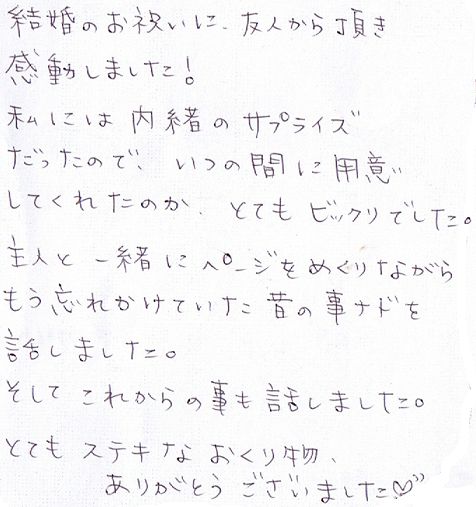 結婚のお祝いに、友人から頂き
感動しました!
私には内緒のサプライズ
だったので、いつの間に用意
してくれたのか、とてもビックリでした。
主人と一緒にページをめくりながら
もう忘れかけていた昔の事ナドを
話しました。
そしてこれからの事も話しました。
とてもステキなおくり物、
ありがとうございました♡”